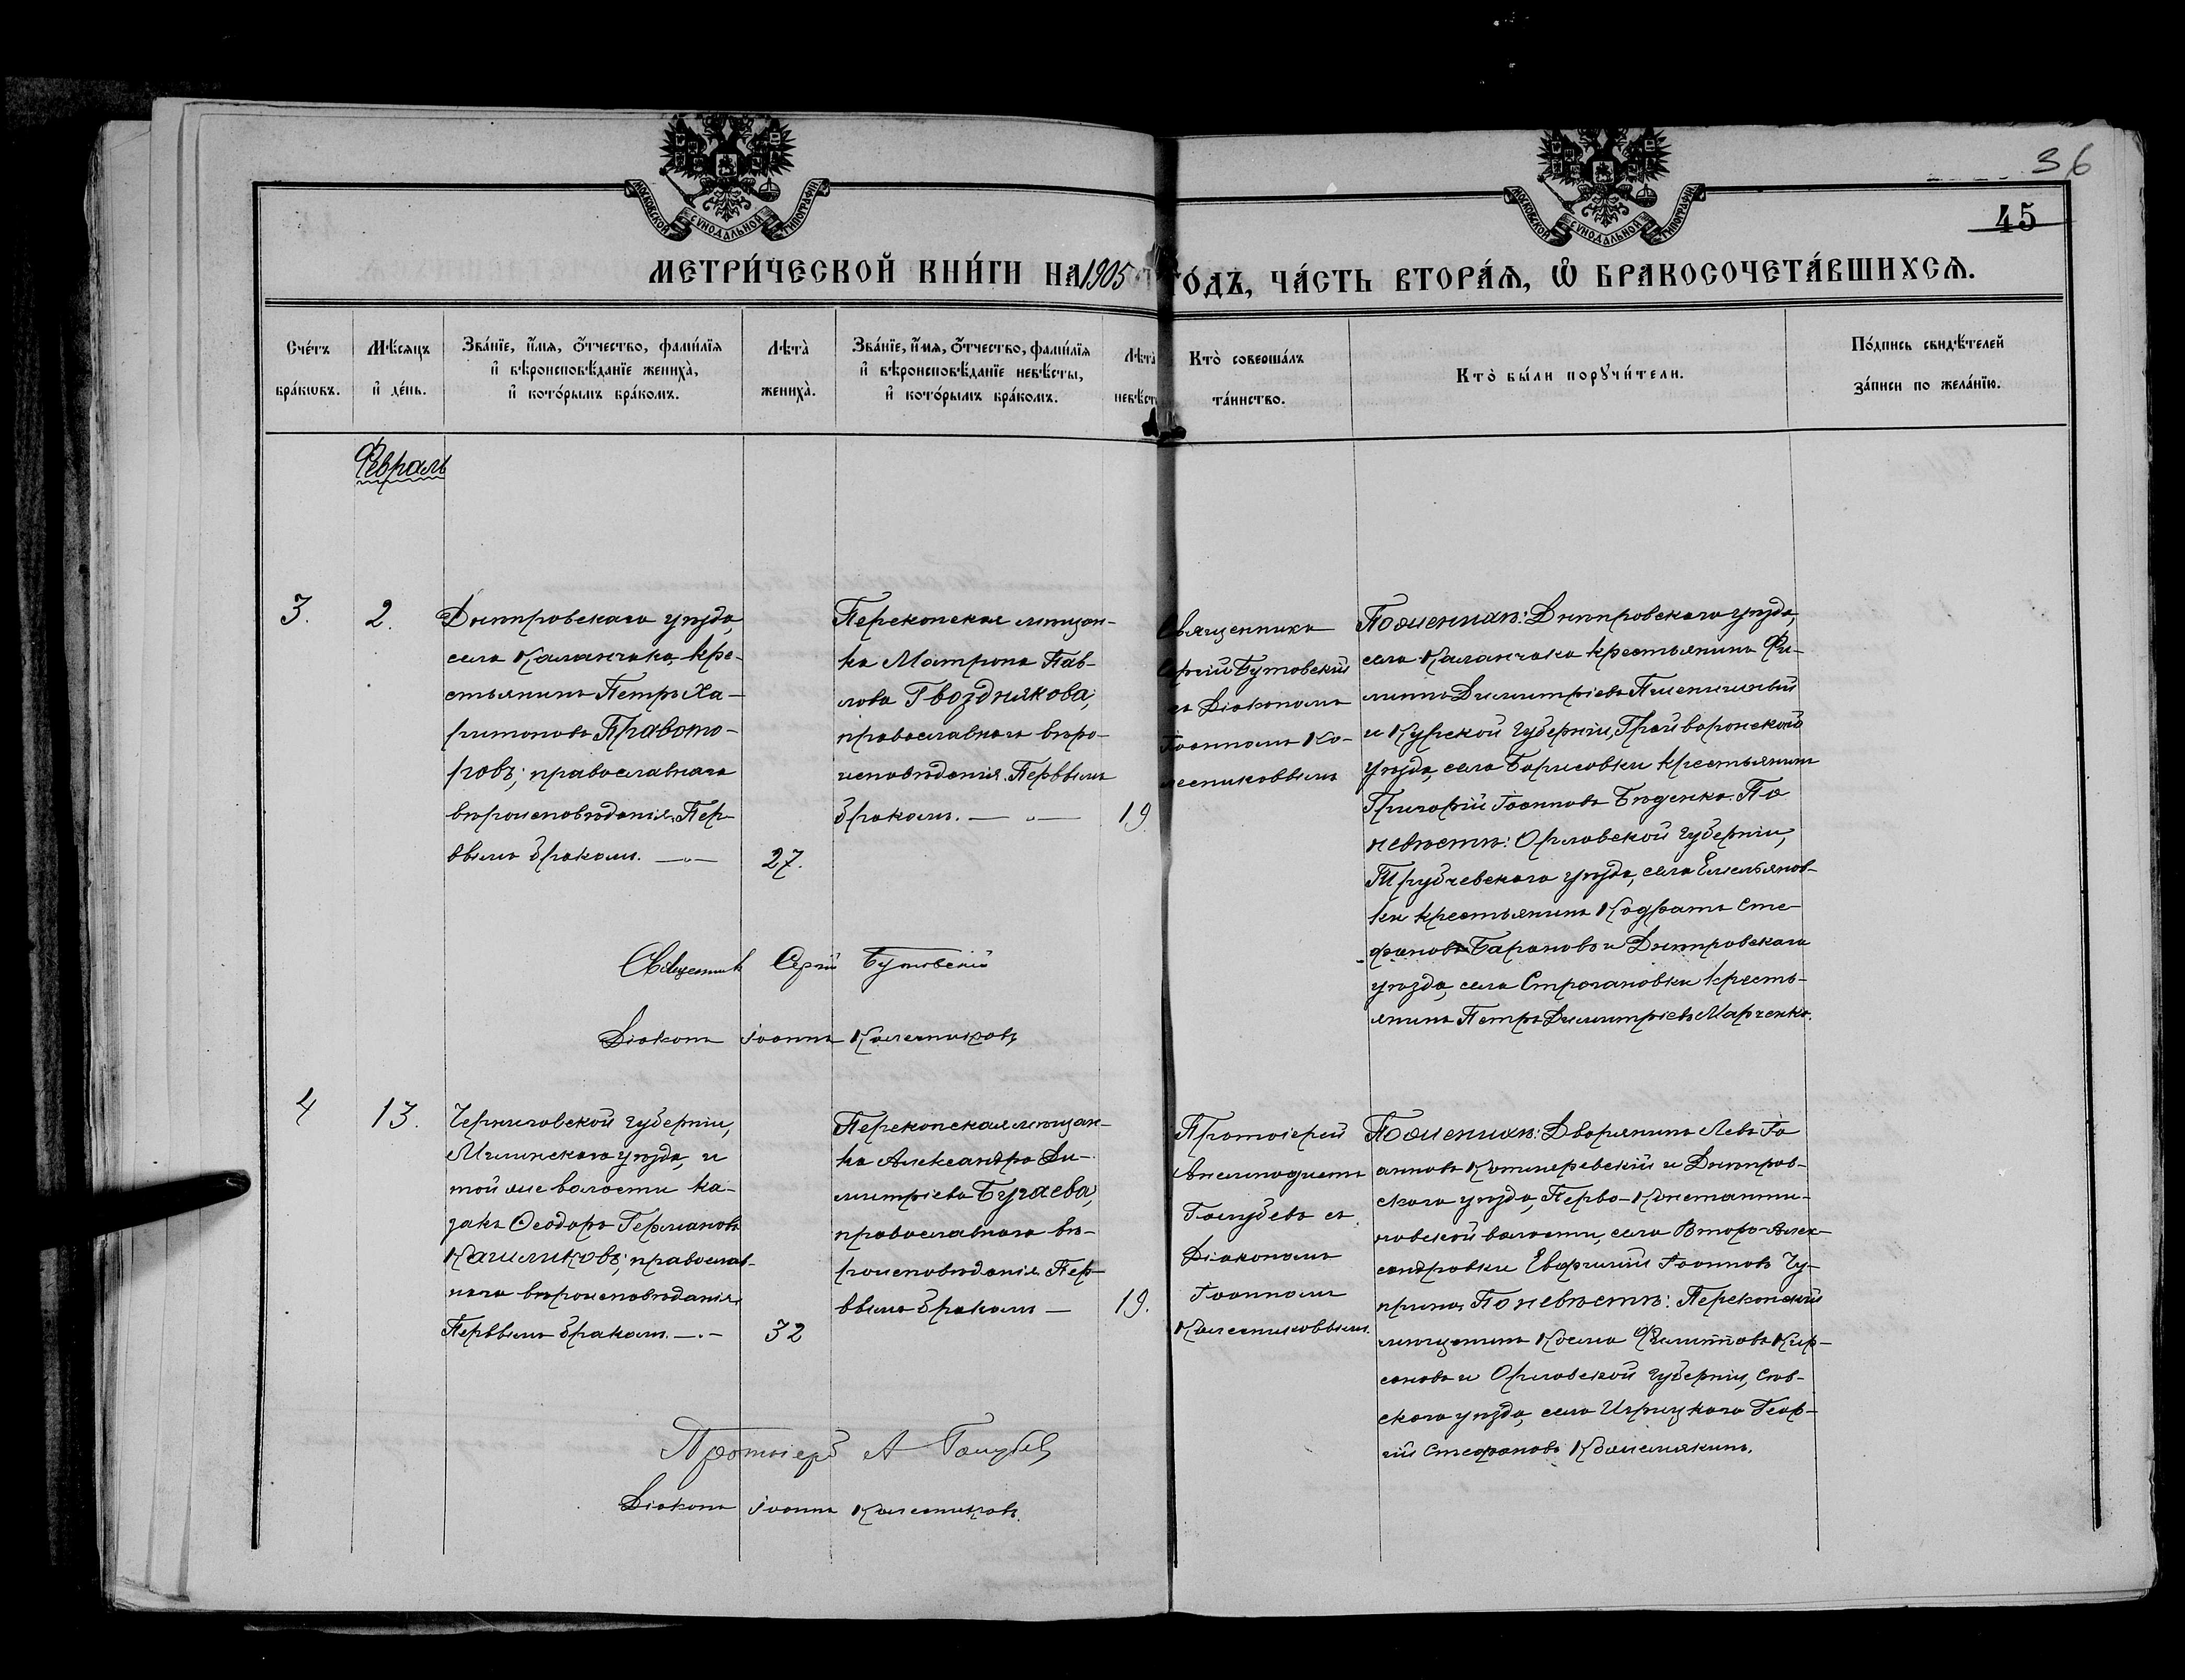 МОСКОВСКОЙ СУНОДАЛЬНОЙ ТИПОГРАФІИ
МОСКОВСКОЙ СУНОДАЛЬНОЙ ТИПОГРАФІИ
36
45
МЕТРИ́ЧЕСКОЙ КНИ́ГИ НА 1905 ГОДЪ, ЧА́СТЬ ВТОРА́Ѧ, Ѡ҆ БРАКОСОЧЕТА́ВШИХСѦ.
Сче́тъ
бра́кѡвъ.
Мѣ́сѧцъ
и҆ де́нь.
Зва́нїе, и҆́мѧ, ѻ҆́тчество, фами́лїѧ
и҆ вѣроисповѣ́данїе жениха̀,
и҆ кото́рымъ бра́комъ.
Лѣта̀
жениха̀.
Зва́нїе, и҆́мѧ, ѻ҆́тчество, фами́лїѧ
и҆ вѣроисповѣ́данїе невѣ́сты,
и҆ кото́рымъ бра́комъ.
Лѣта̀
невѣ́ст
Кто̀ соверша́лъ
та́инство.
Кто̀ бы́ли порꙋчи́тели.
По́дпись свидѣ́телей
за́писи по жела́нїю.
Февраль
3.
2.
Днѣпровскаго уѣзда,
села Каланчака, кре-
стьянинъ Петръ Ха-
ритоновъ Правото-
ровъ; православнаго
вѣроисповѣданія. Пер-
вымъ бракомъ. —„—
27.
Перекопская мѣщан-
ка Матрона Пав-
лова Гвоздникова,
православнаго вѣро-
исповѣданія. Первымъ
бракомъ. — „ —
19.
Священникъ
Сергій Бутовскій
съ Діакономъ
Іоанномъ Ко-
лесниковымъ
По женихѣ: Днѣпровскаго уѣзда,
села Каланчака крестьянинъ Фи-
липпъ Димитріевъ Пшеничный
и Курской губерніи, Грайворонскаго
уѣзда, села Борисовки крестьянинъ
Григорій Іоанновъ Бѣденко. По
невѣстѣ: Орловской губерніи,
Трубчевскаго уѣзда, села Емельянов-
ки крестьянинъ Кодратъ Сте-
фановъ Барановъ и Днѣпровскаго
уѣзда, села Строгановки кресть-
янинъ Петръ Димитріевъ Марченко.
Священникъ Сергій Бутовскій
Діаконъ Іоаннъ Колесниковъ
4
13.
Черниговской губерніи,
Мглинскаго уѣзда, и
той же волости ка-
закъ Ѳеодоръ Германовъ
Кашликовъ; православ-
наго вѣроисповѣданія.
Первымъ бракомъ. —„—
32
Перекопская мѣщан-
ка Александра Ди-
митріева Бугаева,
православнаго вѣ-
роисповѣданія. Пер-
вымъ бракомъ —
19.
Протоіерей
Анемподистъ
Голубевъ съ
Діакономъ
Іоанномъ
Колесниковымъ.
По женихѣ: Дворянинъ Левъ Іо
анновъ и Днѣпров-
скаго уѣзда, Перво-Константи-
новской волости, села Второ-Алек-
сандровки Евфимій Іоанновъ Чу-
прина. По невѣстѣ: Перекопскій
мѣщанинъ Косма Филипповъ Кир-
сановъ и Орловской губерніи, Сѣв-
скаго уѣзда, села Игрицкаго Геор-
гій Стефановъ
Протоіерей А Голубевъ
Діаконъ Іоаннъ Колесниковъ.